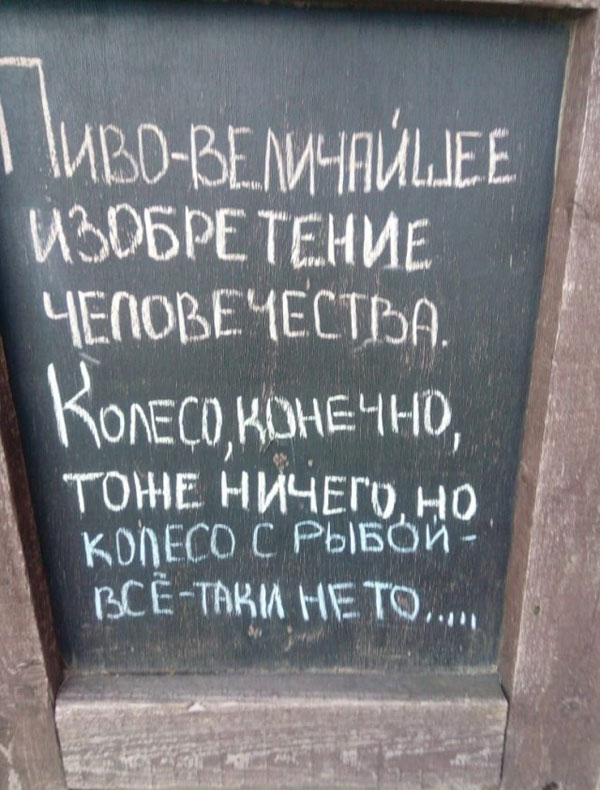 ПИВО-ВЕЛИЧАЙШЕЕ
ИЗОБРЕТЕНИЕ
ЧЕЛОВЕЧЕСТВА.
КОЛЕСО, КОНЕЧНО,
ТОЖЕ НИЧЕГО, НО
КОЛЕСО С РЫБОЙ -
ВСЁ-ТАКИ НЕ ТО.....